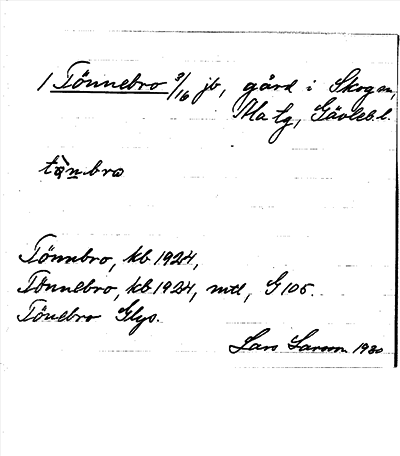 1 Tönnebro 3/16 jb, gård i Skogen,
Gävleb.l.
Tönnbro, kb 1924,
Tönnebro, kb 1924, mtl, G 106.
Tönebro Glys.
Lars Larsson 1930